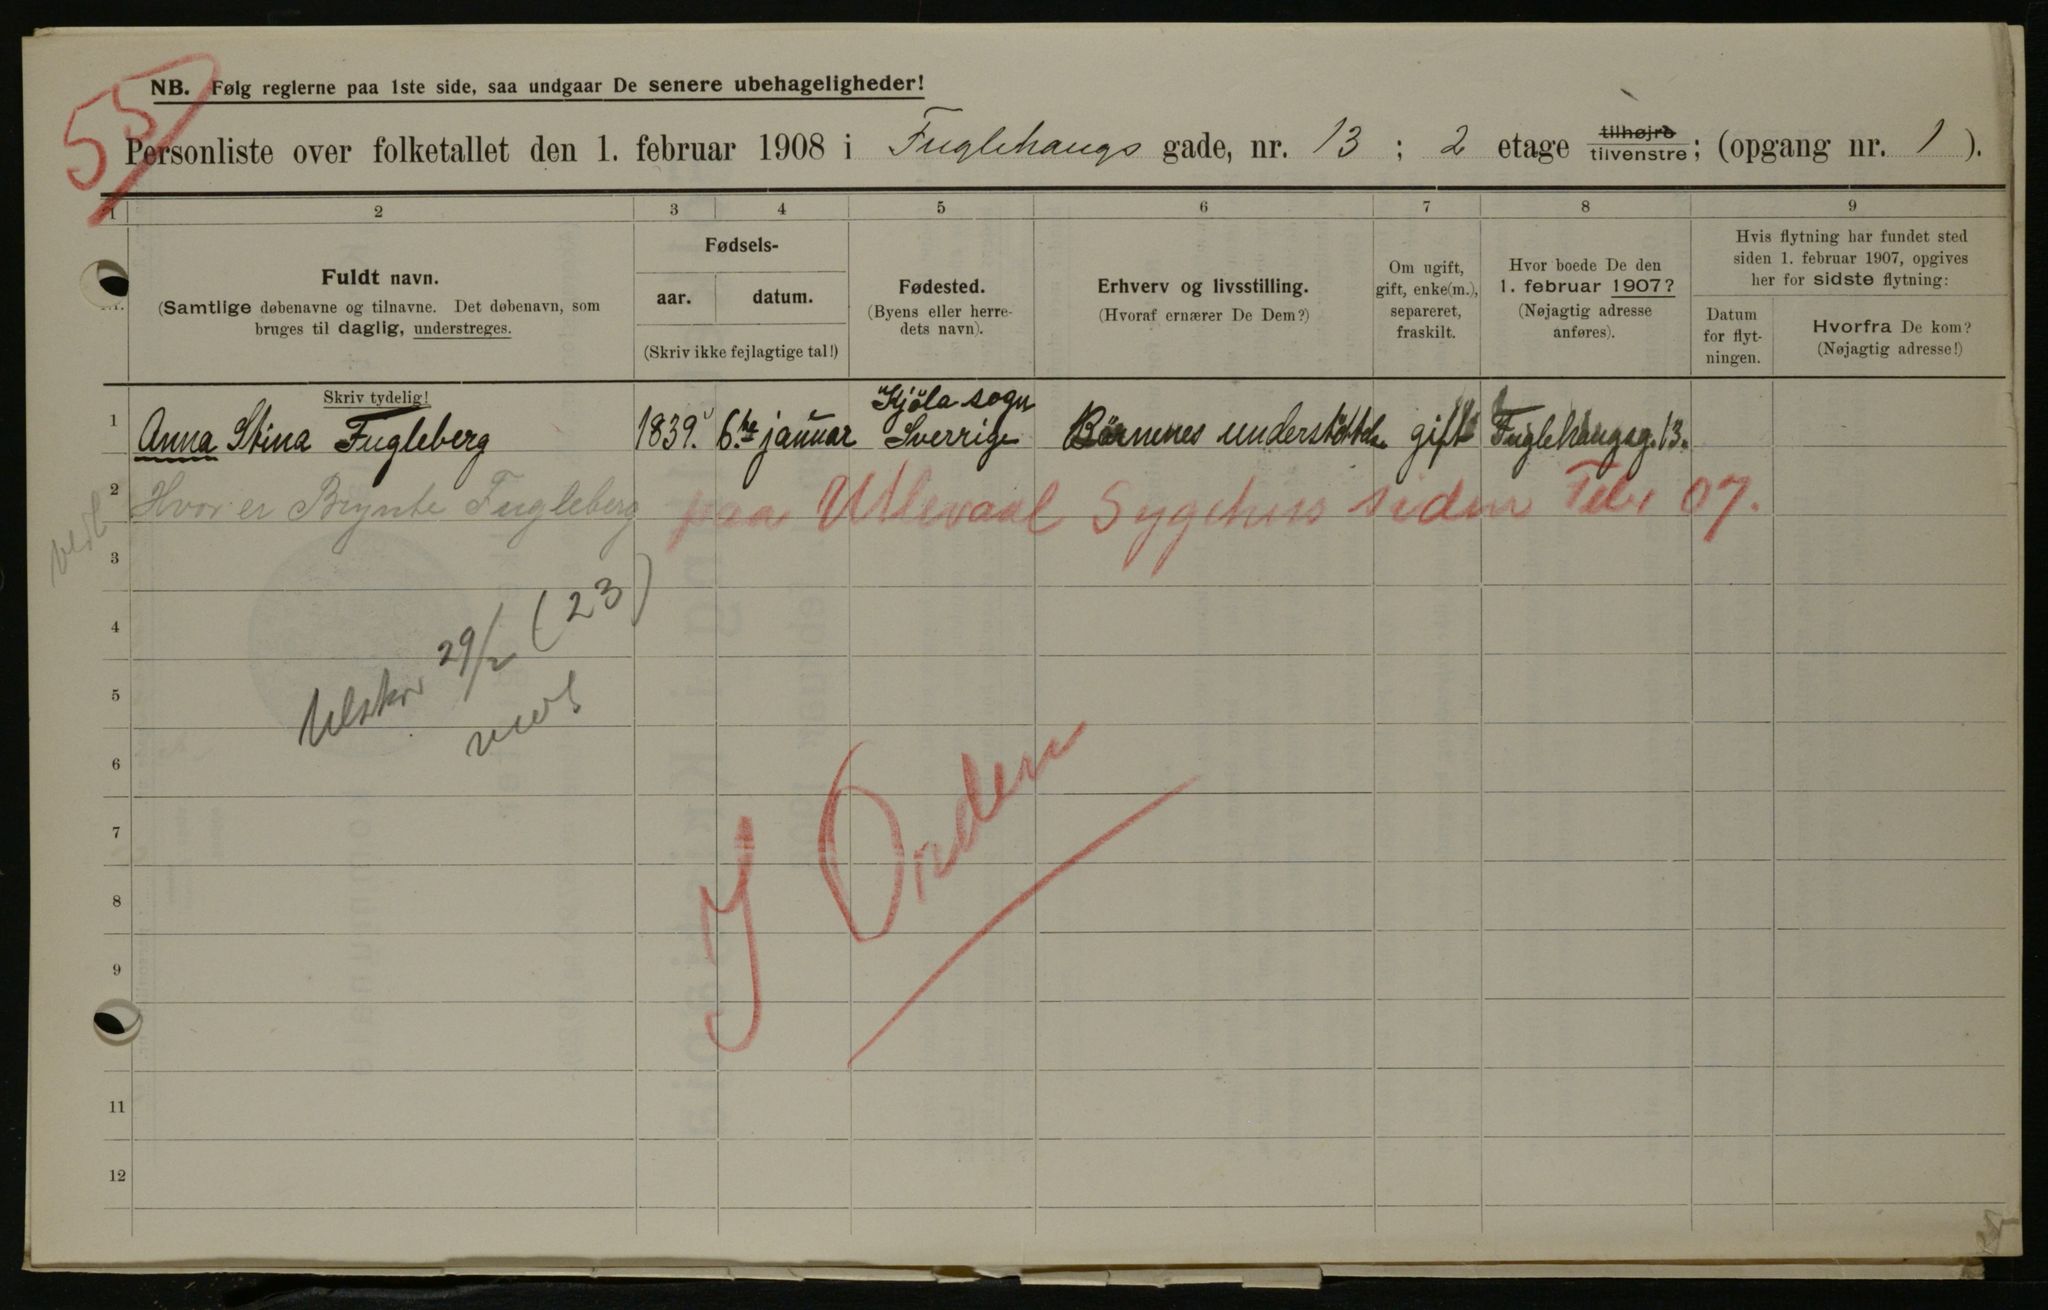 55
NB. Følg reglerne paa 1ste side, saa undgaar De senere ubehageligheder!
Personliste over folketallet den 1. februar 1908 i Fuglehaugs gade, nr. 13 ; 2 etage tilhøjre tilvenstre; (opgang nr. 1 ).
1 2 3 4 5 6 7 8 9
Fuldt navn.
(Samtlige døbenavne og tilnavne. Det døbenavn, som
bruges til daglig, understreges.
Fødsels-
aar. datum.
(Skriv ikke fejlagtige tal!)
Fødested.
(Byens eller herre-
dets navn).
Erhverv og livsstilling.
(Hvoraf ernærer De Dem?)
Om ugift,
gift, enke(m.),
separeret,
fraskilt.
Hvor boede De den
1. februar 1907?
(Nøjagtig adresse
anføres).
Hvis flytning har fundet sted
siden 1. februar 1907, opgives
her for sidste flytning:
Datum
for flyt-
ningen.
Hvorfra De kom?
(Nøjagtig adresse!)
Skriv tydelig!
1 Anna Stina Fugleberg 1839. 6.te januar Kjöla sogn Sverrige Börnenes understöttelse gift Fuglehaugsg. 13.
2 Hvor er Brynte Fugleberg paa Ullevaal Sygehus siden Febr 07.
3
4
29/2 (23)
5
6
7
I Orden
8
9
11
12